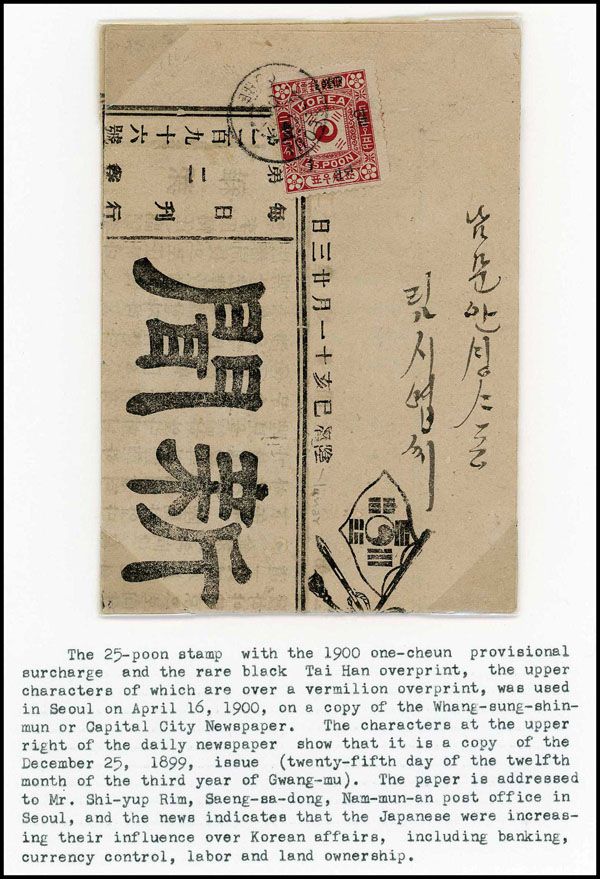 KOREA
POON
號六十九百二第
行刊日每
新聞
日三廿月一十亥己
남문안
림시엽씨
The 25-poon stamp with the 1900 one-cheun provisional
surcharge and the rare black Tai Han overprint, the upper
characters of which are over a vermilion overprint, was used
in Seoul on April 16, 1900, on a copy of the Whang-sung-shin-
mun or Capital City Newspaper. The characters at the upper
right of the daily newspaper show that it is a copy of the
December 25, 1899, issue (twenty-fifth day of the twelfth
month of the third year of Gwang-mu). The paper is addressed
to Mr. Shi-yup Rim, Saeng-sa-dong, Nam-mun-an post office in
Seoul, and the news indicates that the Japanese were increas-
ing their influence over Korean affairs, including banking,
currency control, labor and land ownership.